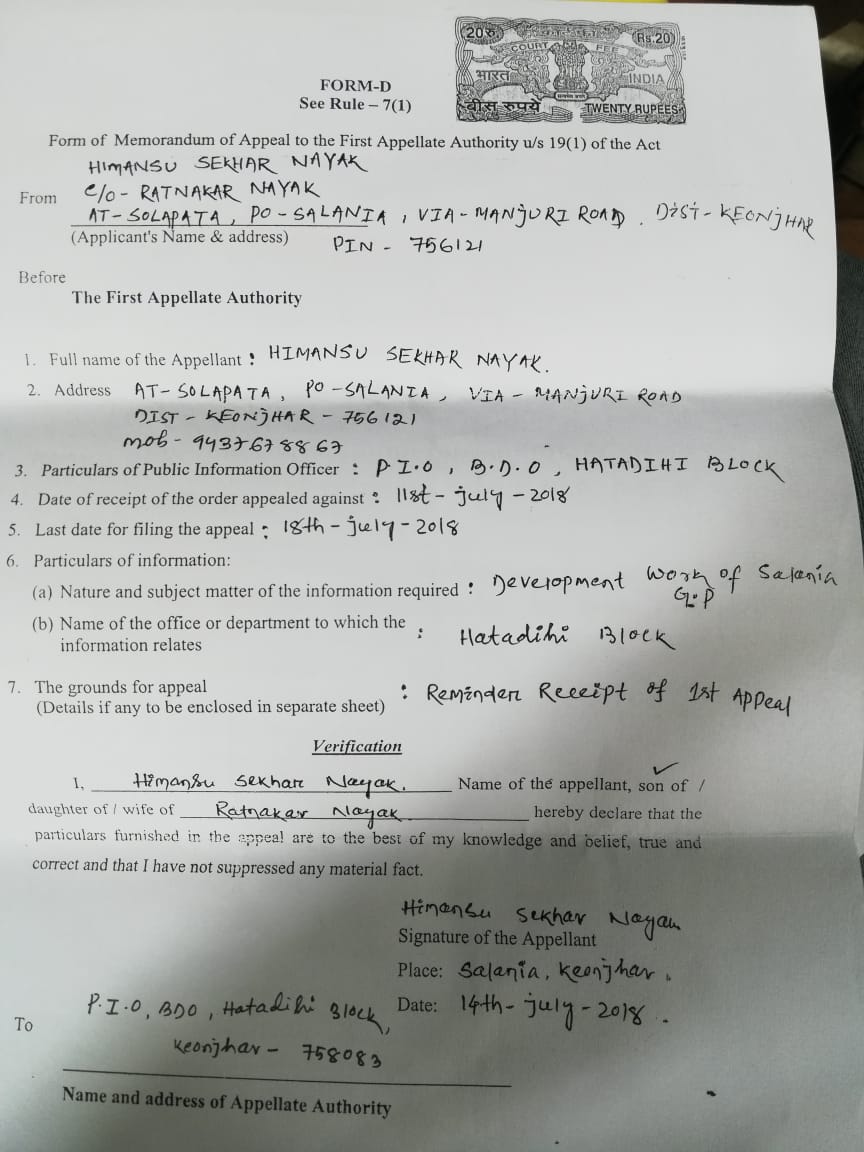 20रु. Rs.20
COURT FEE
भारत INDIA
बीस रुपये TWENTY RUPEES
FORM-D
See Rule – 7(1)
Form of Memorandum of Appeal to the First Appellate Authority u/s 19(1) of the Act
HIMANSU SEKHAR NAYAK
From C/o - RATNAKAR NAYAK
AT-SOLAPATA, PO-SALANIA, VIA-MANJURI ROAD. DIST-KEONJHAR
(Applicant's Name & address) PIN - 756121
Before
The First Appellate Authority
1. Full name of the Appellant : HIMANSU SEKHAR NAYAK.
2. Address AT-SOLAPATA, PO-SALANIA, VIA - MANJURI ROAD
DIST - KEONJHAR - 756121
mob - 9437678867
3. Particulars of Public Information Officer : P.I.O, B.D.O, HATADIHI BLOCK
4. Date of receipt of the order appealed against : 11st - july - 2018
5. Last date for filing the appeal : 18th - july - 2018
6. Particulars of information:
(a) Nature and subject matter of the information required : Development Work of Salania
G.P
(b) Name of the office or department to which the
information relates : Hatadihi Block
7. The grounds for appeal : Reminder Receipt of 1st Appeal
(Details if any to be enclosed in separate sheet)
Verification
I, Himansu Sekhar Nayak. Name of the appellant, son of /
daughter of / wife of Ratnakar Nayak hereby declare that the
particulars furnished in the appeal are to the best of my knowledge and belief, true and
correct and that I have not suppressed any material fact.
Himansu Sekhar Nayak
Signature of the Appellant
Place: Salania, Keonjhar.
Date: 14th - july - 2018.
To P.I.O, BDO, Hatadihi Block,
Keonjhar - 758083
Name and address of Appellate Authority